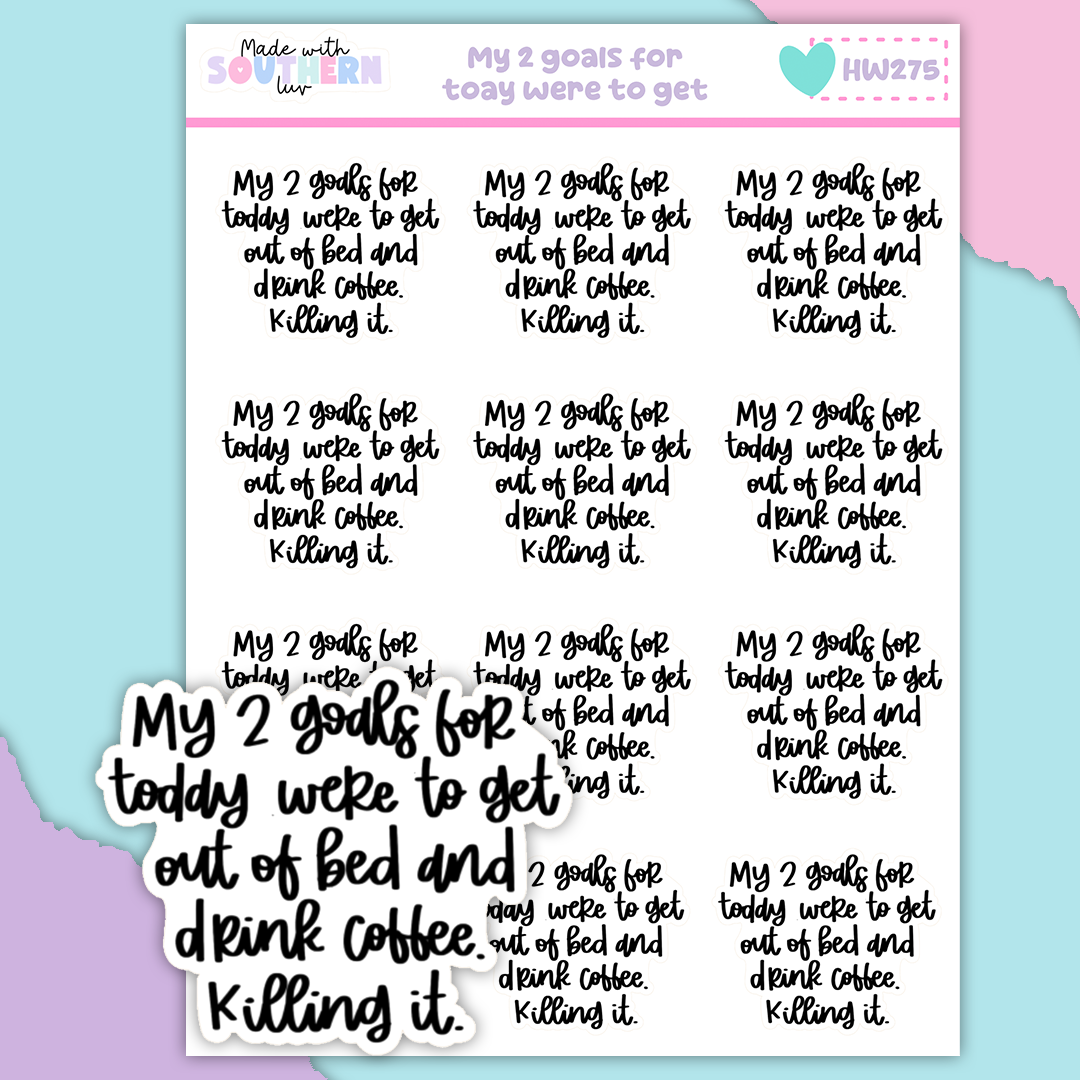 Made with
SOUTHERN
luv
My 2 goals for
toay were to get
HW275
My 2 goals for
today were to get
out of bed and
drink coffee.
Killing it.
My 2 goals for
today were to get
out of bed and
drink coffee.
Killing it.
My 2 goals for
today were to get
out of bed and
drink coffee.
Killing it.
My 2 goals for
today were to get
out of bed and
drink coffee.
Killing it.
My 2 goals for
today were to get
out of bed and
drink coffee.
Killing it.
My 2 goals for
today were to get
out of bed and
drink coffee.
Killing it.
My 2 goals for
today were to get
My 2 goals for
today were to get
of bed and
coffee.
it.
My 2 goals for
today were to get
out of bed and
drink coffee.
Killing it.
My 2 goals for
today were to get
out of bed and
drink coffee.
Killing it.
2 goals for
were to get
out of bed and
drink coffee.
Killing it.
My 2 goals for
today were to get
out of bed and
drink coffee.
Killing it.